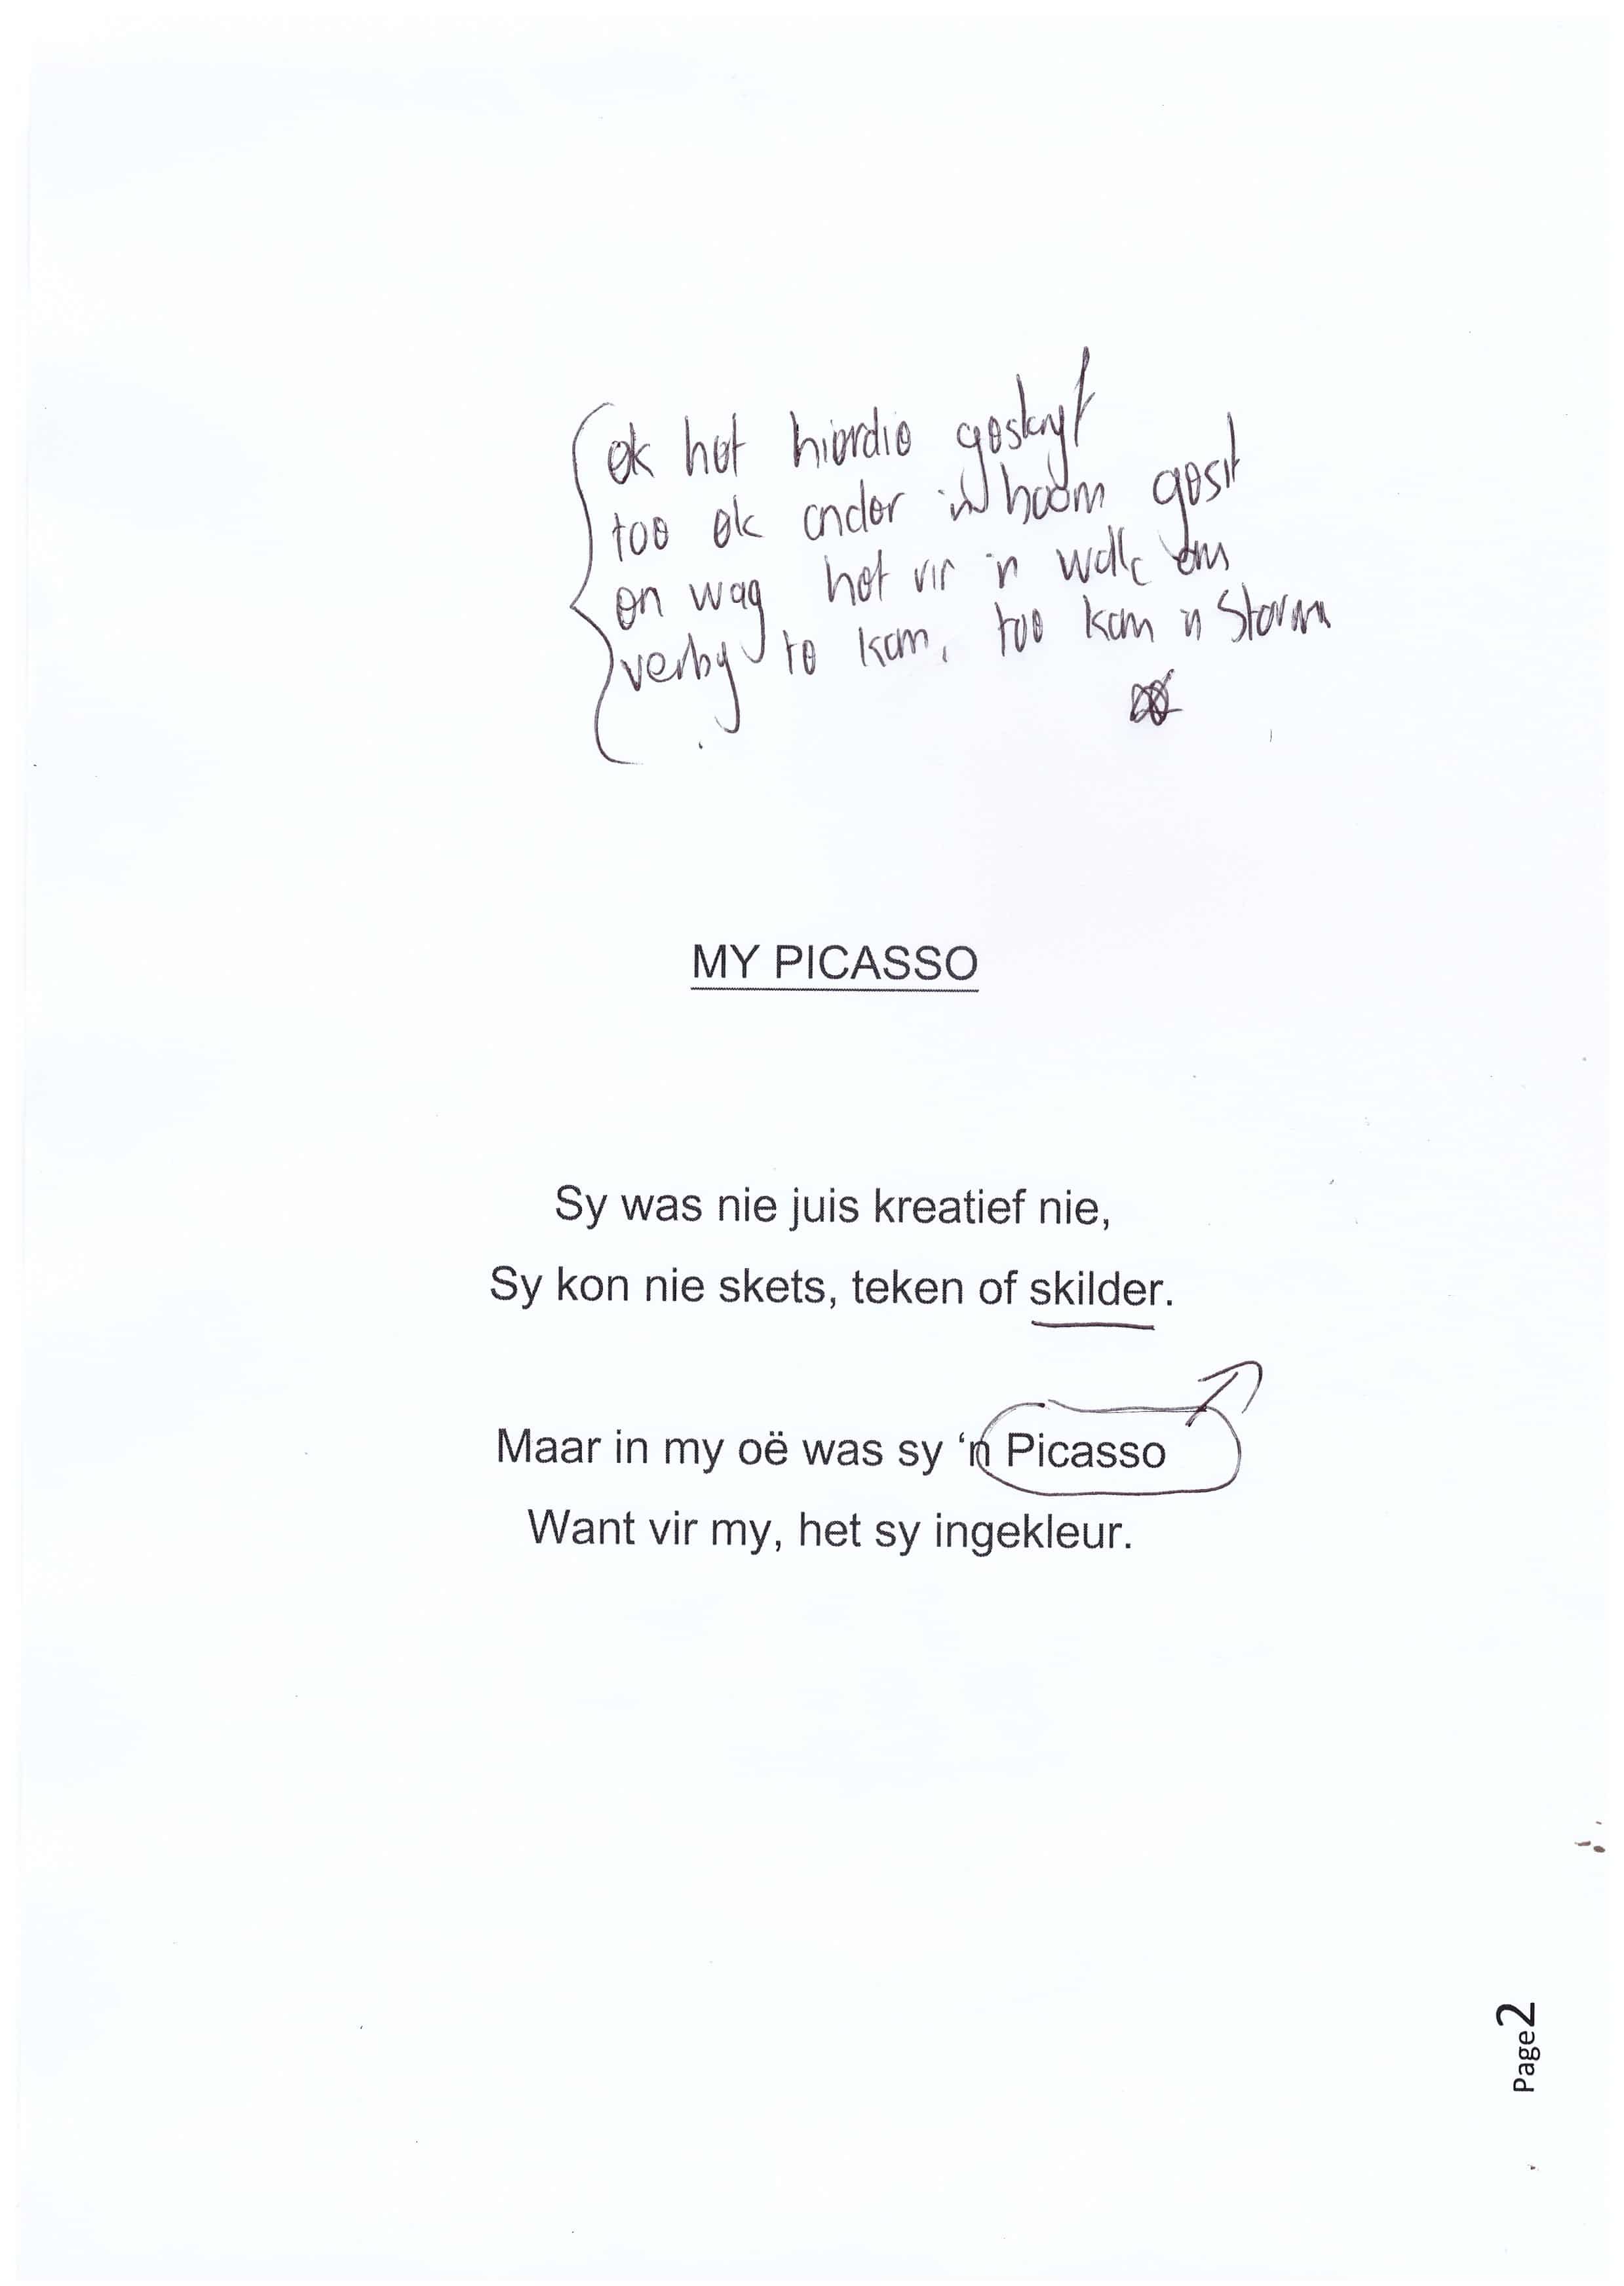 ek het hierdie geskryf
toe ek onder 'n boom gesit
en wag het vir 'n wolk om
verby te kom, toe kom 'n Storm
MY PICASSO
Sy was nie juis kreatief nie,
Sy kon nie skets, teken of skilder.
Maar in my oë was sy ‘n Picasso
Want vir my, het sy ingekleur.
Page 2